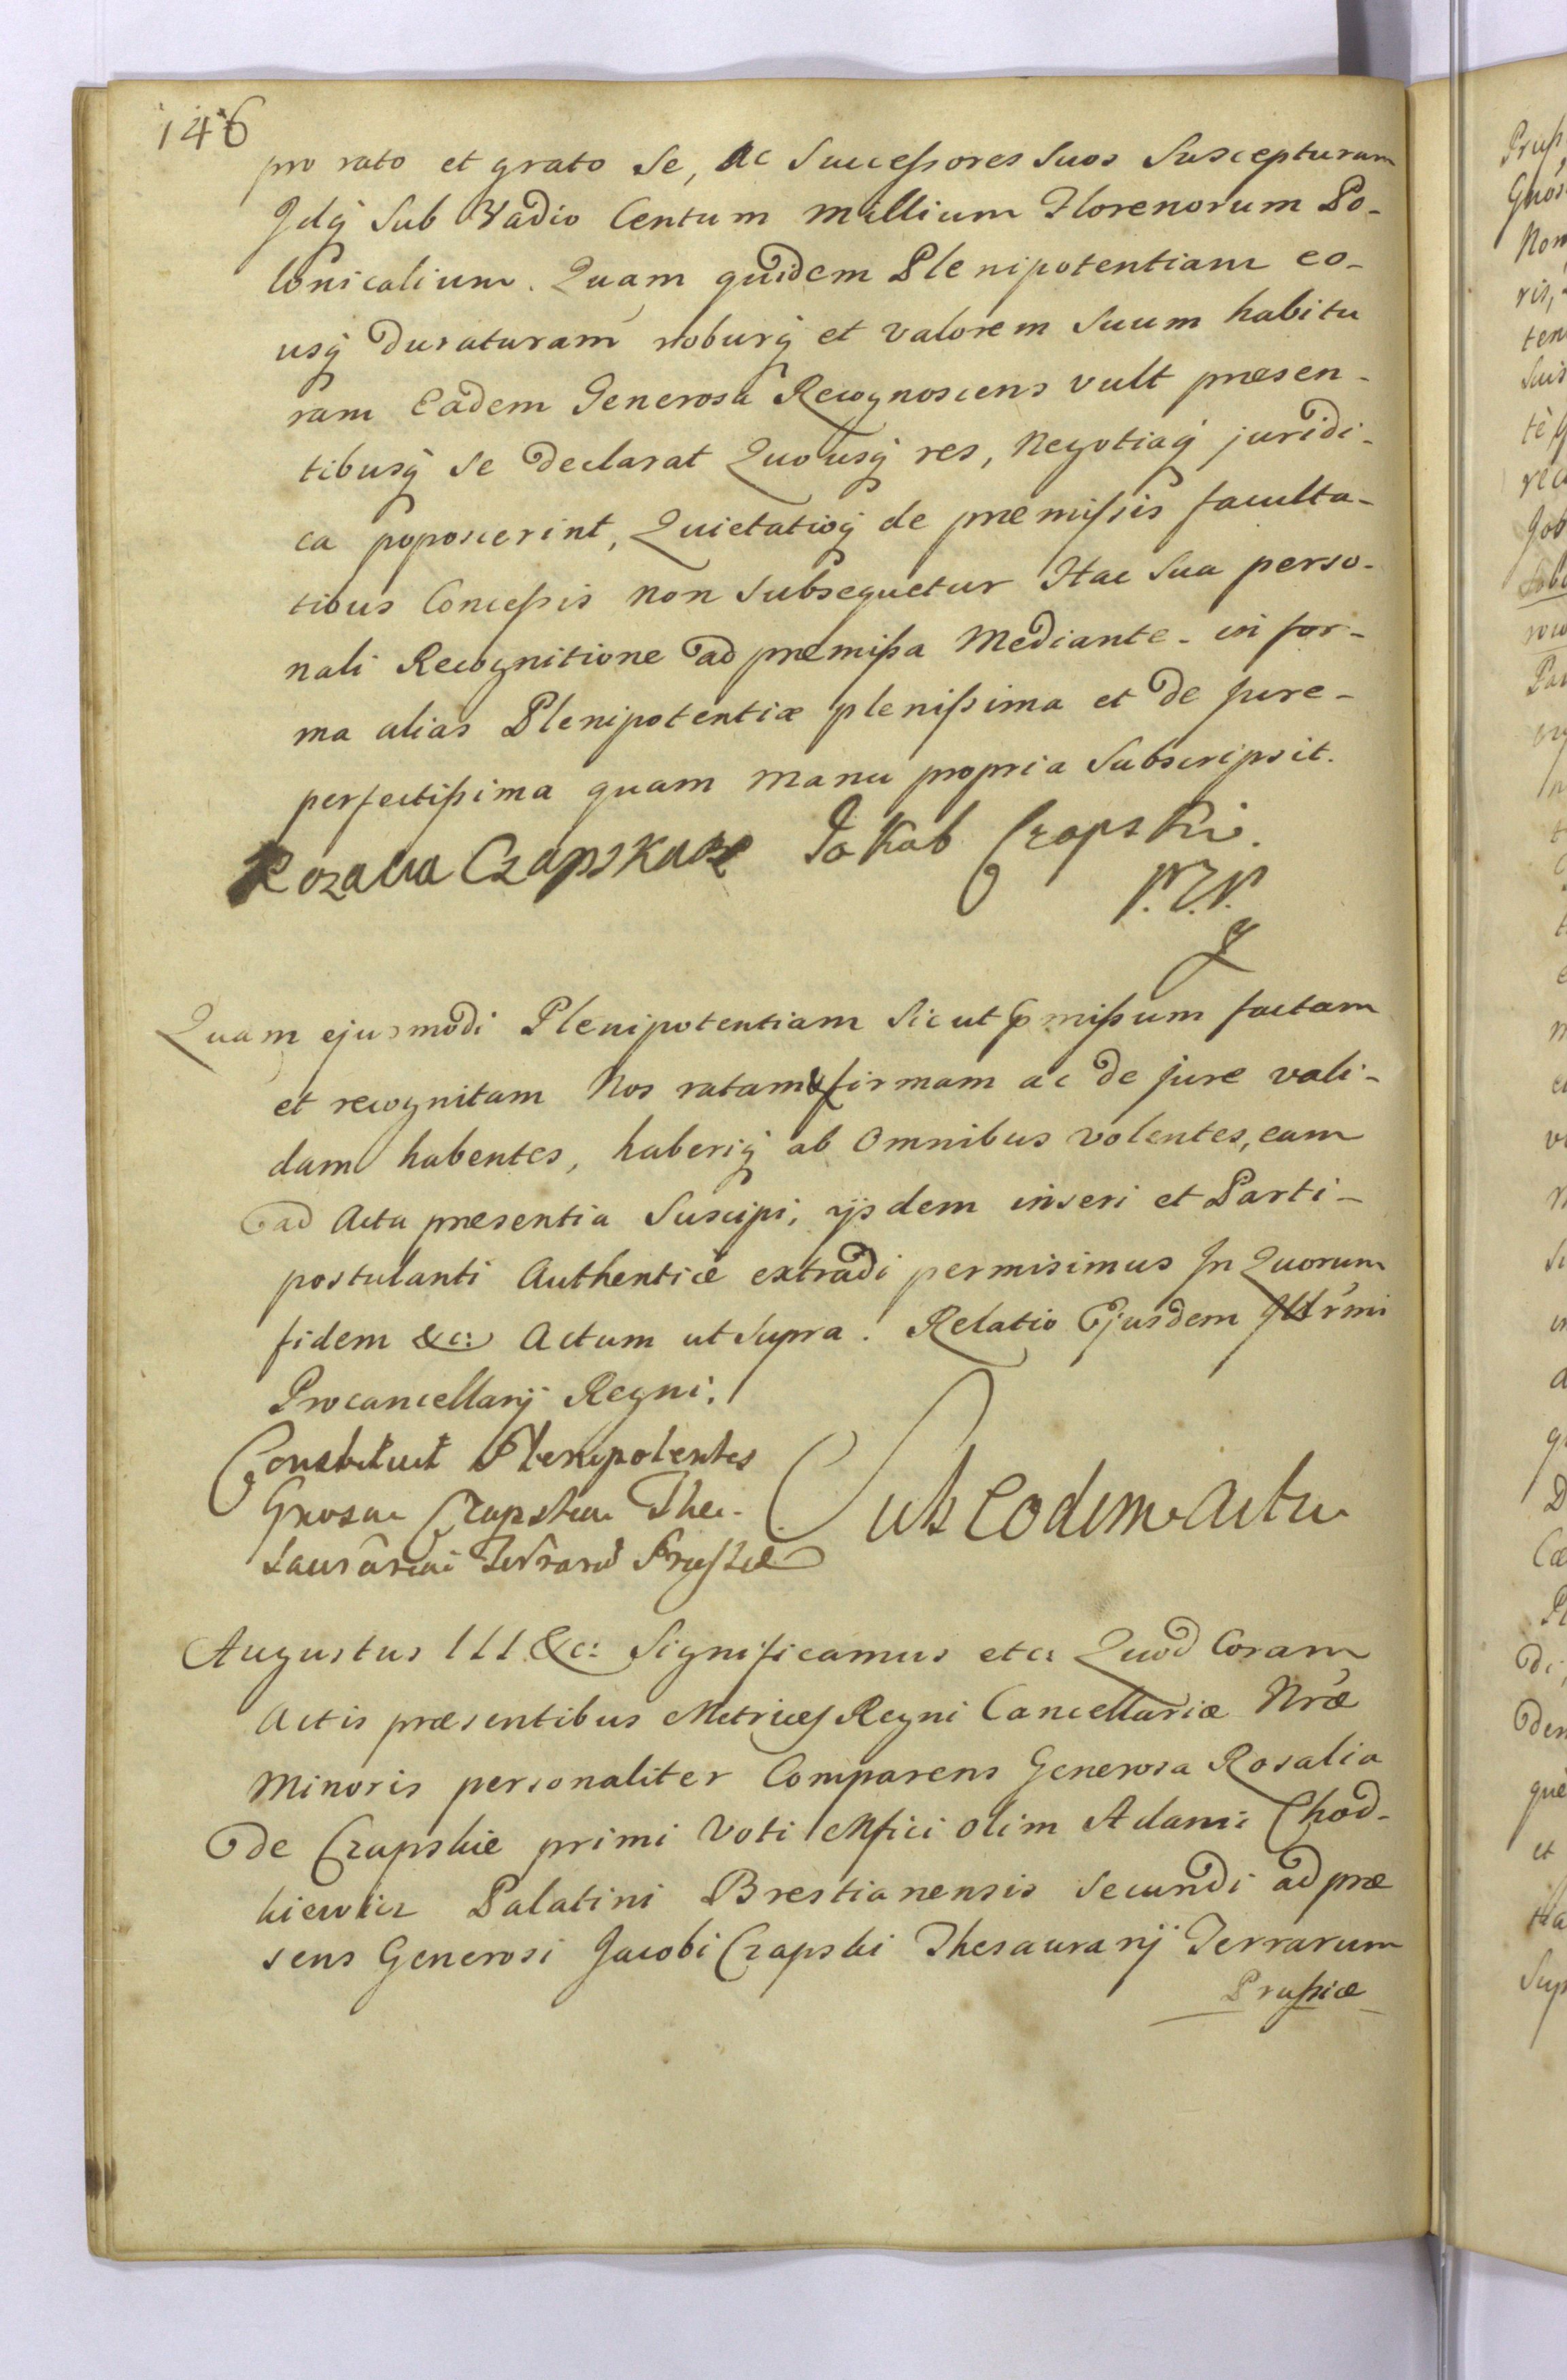 146
pro rato et grato Se, Ac Successores Suos Suscepturam
Idq̃ Sub Vadio Centum Millium Florenorum Po-
lonicalium. Quam quidem Plenipotentiam eo-
usq̃ Duraturam roburq̃ et valorem Suum habitu
ram Eadem Generosa Recognoscens vult præsen-
tibusq̃ Se Declarat Quousq̃ res, Negotiaq̃ juridi-
ca poposcerint, Quietatioq̃ de præmissis faculta-
tibus Concessis non Subsequetur Hac Sua perso-
nali Recognitione ad præmissa Mediante - in for-
ma alias Plenipotentiæ plenissima et De Jure -
perfectissima quam manu propria Subscripsit.
Rozalia Czapska Jakub Czapski.
P.Z.P.
Quam ejusmodi Plenipotentiam Sicut p̃missum factam
et recognitam Nos ratam & firmam ac De jure vali-
dam habentes, haberiq̃ ab Omnibus volentes, eam
ad Acta præsentia Suscipi, ijsdem inseri et Parti-
postulanti Authenticè extradi permisimus In Quorum
fidem &c: Actum ut Supra. Relatio Ejusdem Illr̃mi
Procancellarij Regni.
Constituit Plenipotentes
Gnosa Czapska The-
saurariai Terrarũ Prussiæ
Sub Eodem Actu
Augustus III &c: Significamus etc: Quod Coram
Actis præsentibus Metrices Regni Cancellariæ Nr̃æ
Minoris personaliter Comparens Generosa Rosalia
De Czapskie primi Voti Mfici olim Adami Chod-
kiewicz Palatini Brestianensis Secundi ad præ
sens Generosi Jacobi Czapski Thesaurarij Terrarum
Prussiæ